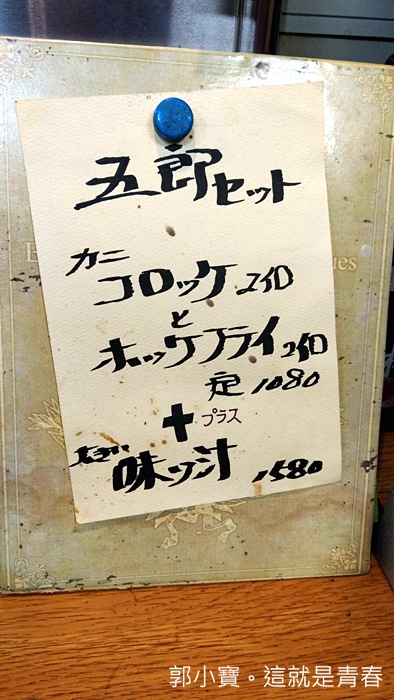 五郎セット
カニ
コロッケ 2イロ
と
ホッケフライ 2イロ
定 1080
+ プラス
味ツ汁 1580
ues
郭小寶。這就是青春